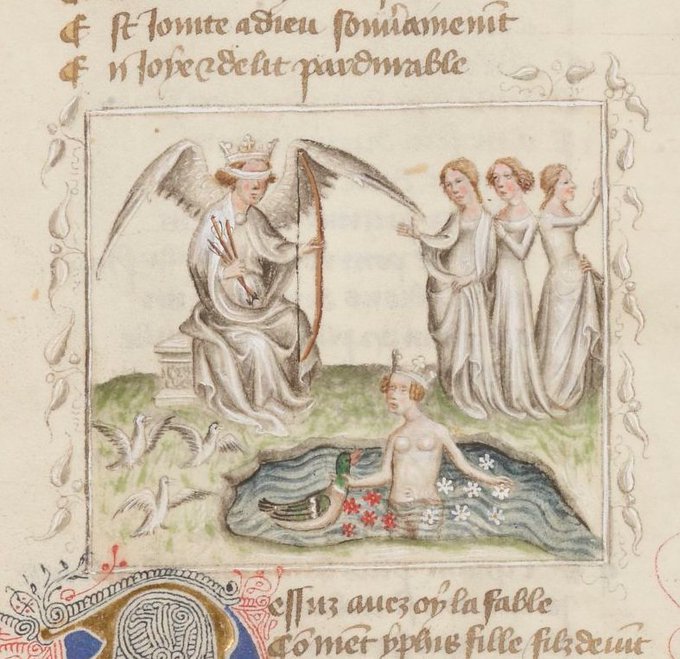 Est iointe a dieu souuainemẽt
En ioye & delit pardurable
Dessuz auez oÿ la fable
Cõmẽt yphis fille filz deuĩt